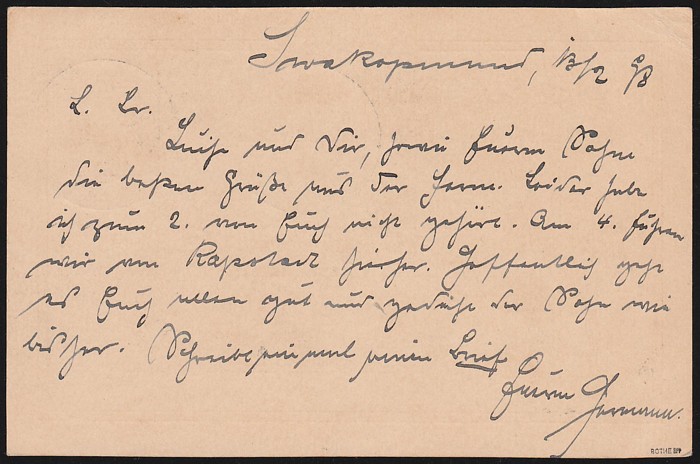 Swakopmund, 13/2 98
L. Br.
Luise und Dir, sowie Eurem Sohne
die besten Grüße aus der Ferne. Leider habe
ich zum 2. von Euch nicht gehört. Am 4. fuhren
wir von Kapstadt hierher. Hoffentlich geht
es Euch allen gut und gedeiht der Sohn wie
bisher. Schreibt einmal einen Brief
Euerm Hermann.
ROTHE BPP